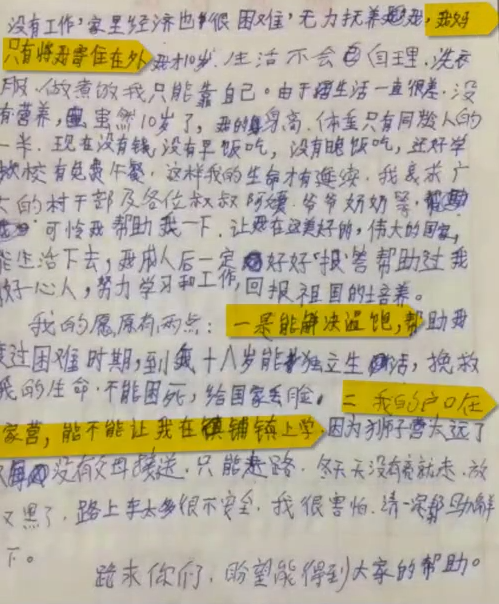 没有工作，家里经济也很困难，无力抚养我，我妈
只有将我寄住在外 我才10岁，生活不会自理，洗衣
服，做煮饭我只能靠自己。由于生活一直很差，没
有营养，虽然10岁了，我的身高，体重只有同龄人的
一半，现在没有钱，没有早饭吃，没有晚饭吃，还好学
校有免费午餐，这样我的生命才有延续，我哀求广
大的村干部及各位叔叔阿姨，爷爷奶奶等，
可怜我帮助我一下，让我在这美好的，伟大的国家，
能生活下去，我成人后一定好好"报"答帮助过我
的好心人，努力学习和工作，回报祖国的培养。
我的愿原有两点：一是能解决温饱，帮助我
度过困难时期，到我十八岁能独立生活，挽救
我的生命，不能困死，给国家丢脸，二我的户口在
家营，能不能让我在镇铺镇上学，因为狮子营太远了
没有父母接送，只能走路，冬天天没有亮就走，放
又黑了，路上车太多很不安全，我很害怕，请一定帮助解
下。
跪求你们，盼望能得到大家的帮助。